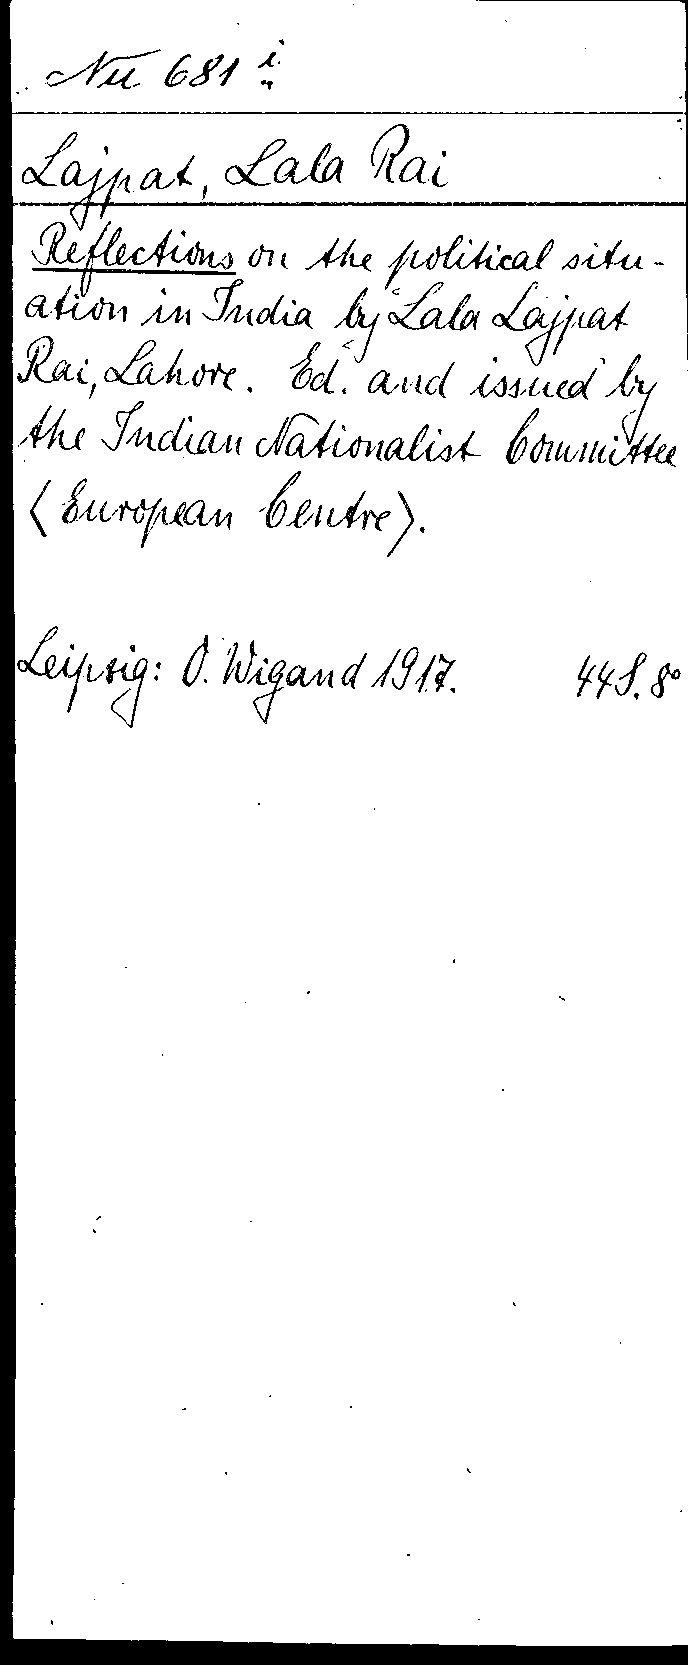 Nu 681 i
Lajpat, Lala Rai
Reflections on the political situ-
ation in India by Lala Lajpat
Rai, Lahore. Ed. and issued by
the Indian Nationalist Committee
〈European Centre〉.
Leipzig: O. Wigand 1917. 44 S. 8°